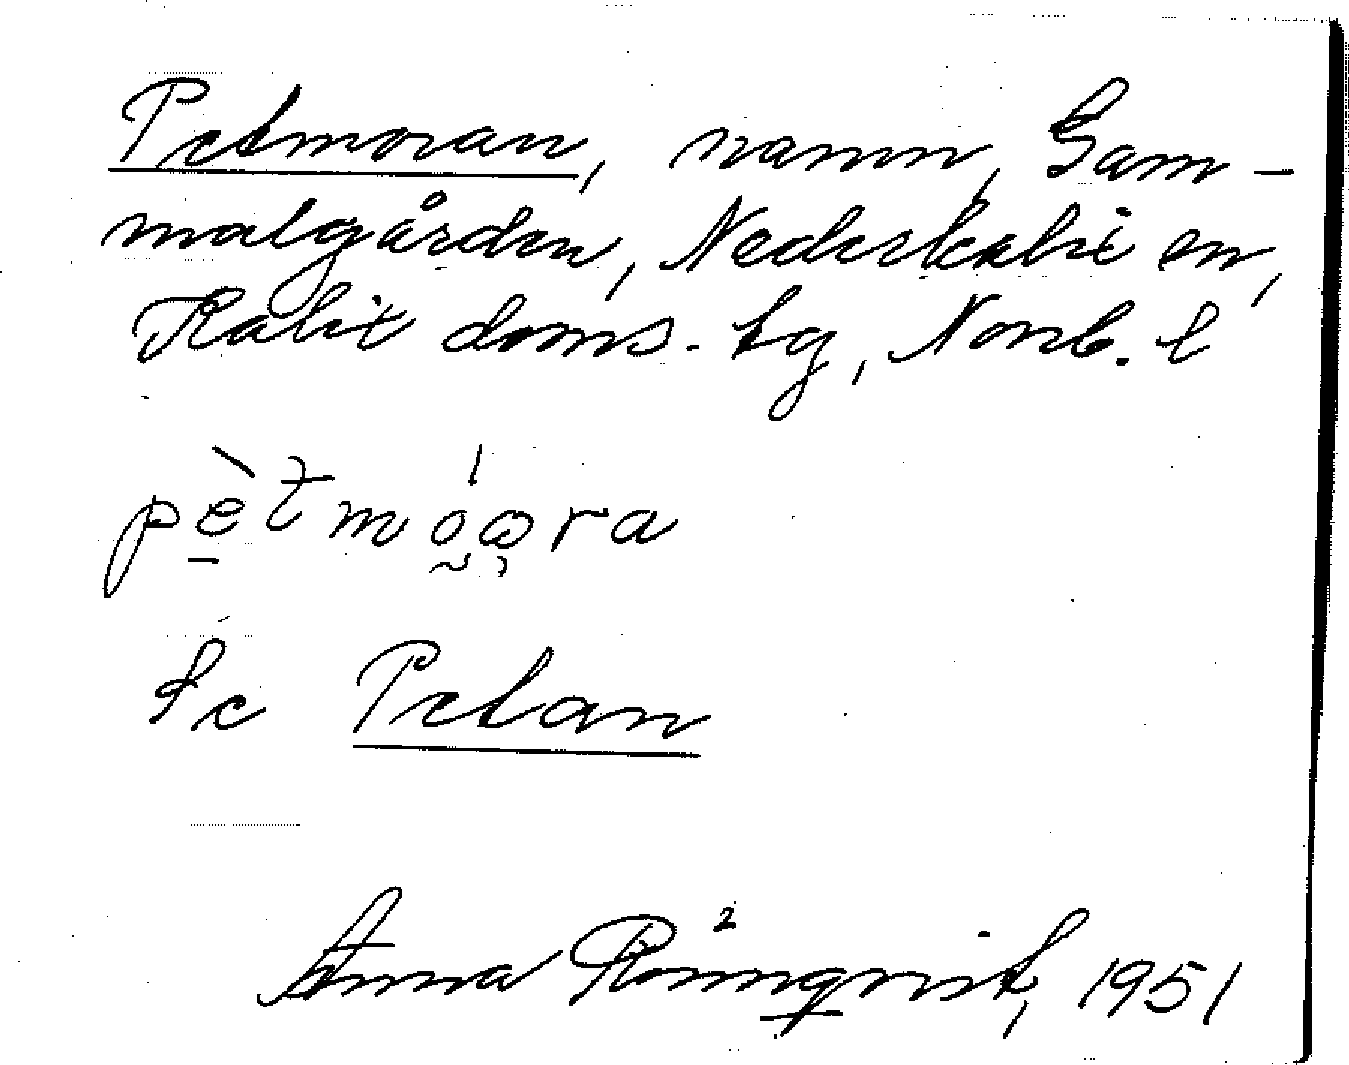 Petmoran, namn, Gam-
malgården, Nederkalix en,
Kalix doms. tg, Norrb. l
pètmóωra
Se Petan
Anna Rönnqvist, 1951